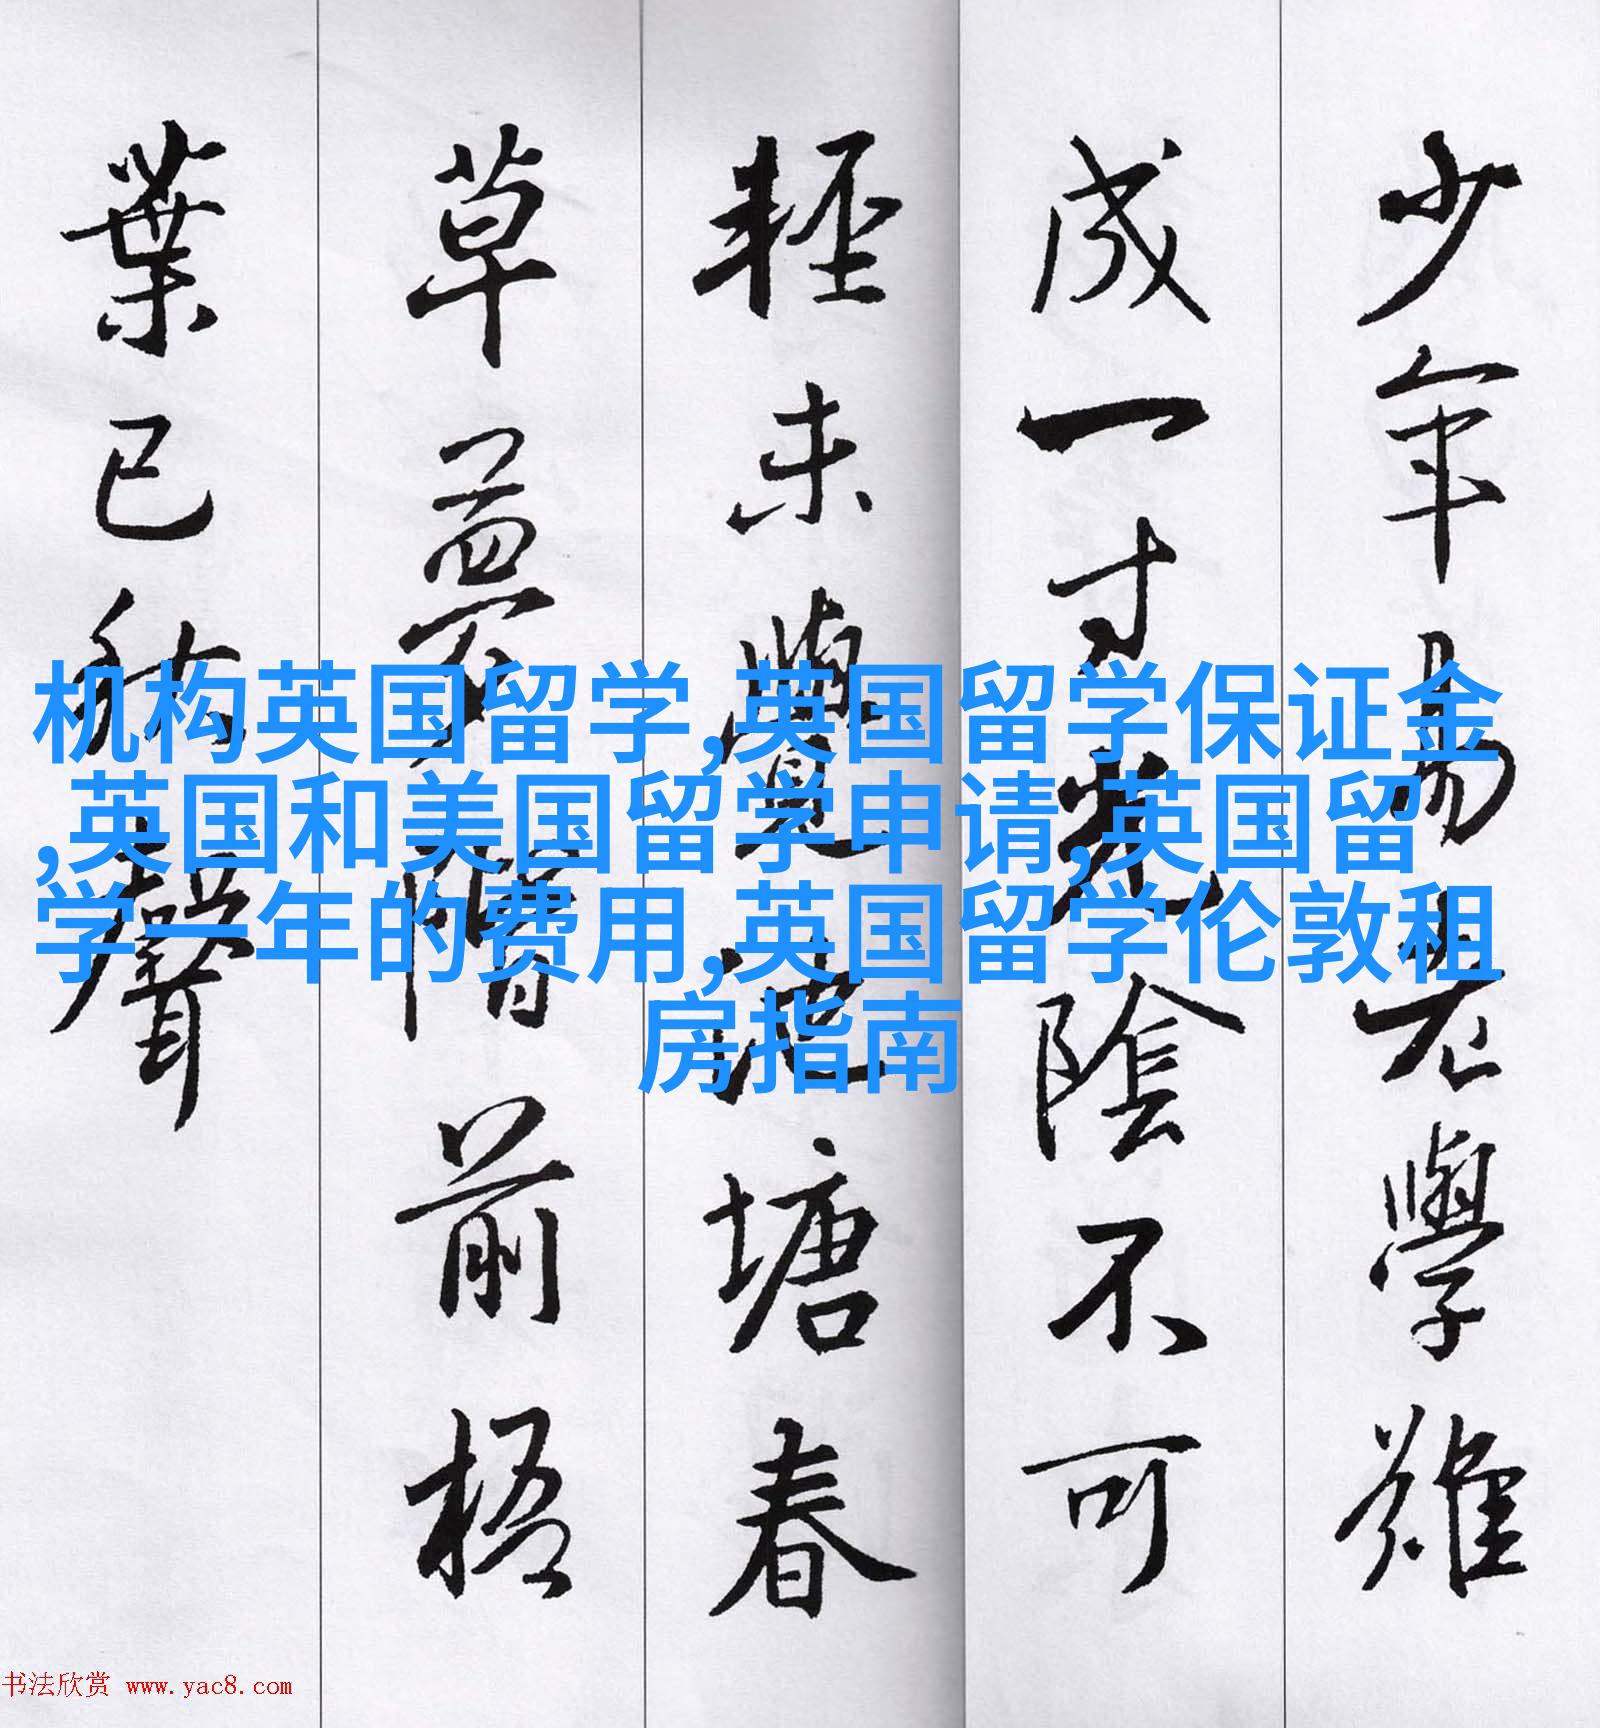 少年易老學難
成一寸光陰不可
輕未覺池塘春
草夢階前梧
葉已秋聲
机构英国留学,英国留学保证金
,英国和美国留学申请,英国留
学一年的费用,英国留学伦敦租
房指南
书法欣赏 www.yac8.com